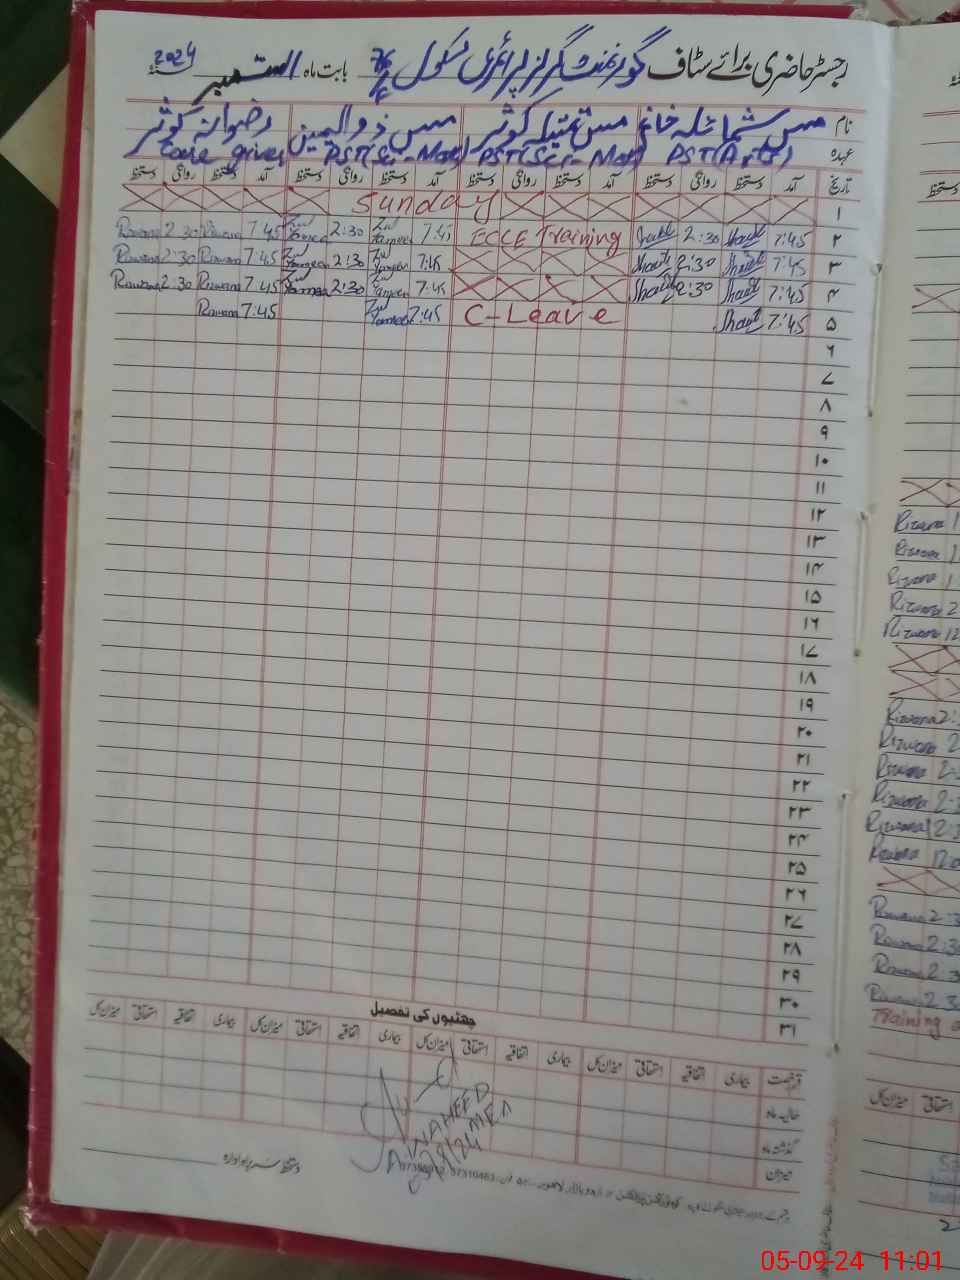 رجسٹر حاضری برائے سٹاف گورنمنٹ گرلز پرائمری سکول بابت ماہ ستمبر 2024
نام مس شمائلہ خانم مس کوثر مس ذوالیمین رضوانہ کوثر
عہدہ PST(Arts) PST(Sci-Mat) PST(Sci-Mat) Care giver
تاریخ آمد دستخط روانگی دستخط آمد دستخط روانگی دستخط آمد دستخط روانگی دستخط آمد دستخط روانگی دستخط
۱ Sunday
۲ 7:45 Shaail 2:30 Shaail ECCE Training 7:45 Zul Yameen 2:30 Zul Yameen 7:45 Rizwana 2:30 Rizwana
۳ 7:45 Shaail 2:30 Shaail 7:45 Zul Yameen 2:30 Zul Yameen 7:45 Rizwana 2:30 Rizwana
۴ 7:45 Shaail 2:30 Shaail 7:45 Zul Yameen 2:30 Zul Yameen 7:45 Rizwana 2:30 Rizwana
۵ 7:45 Shaail C-Leave 7:45 Zul Yameen 7:45 Rizwana
۶
۷
۸
۹
۱۰
۱۱
۱۲
۱۳
۱۴
۱۵
۱۶
۱۷
۱۸
۱۹
۲۰
۲۱
۲۲
۲۳
۲۴
۲۵
۲۶
۲۷
۲۸
۲۹
۳۰
۳۱
چھٹیوں کی تفصیل
رخصت بیماری اتفاقیہ استحقاقی میزان کل بیماری اتفاقیہ استحقاقی میزان کل بیماری اتفاقیہ استحقاقی میزان کل بیماری اتفاقیہ استحقاقی میزان کل
حالیہ ماہ
گذشتہ ماہ
میزان
NAHEED
MEA
دستخط سربراہ ادارہ
Rizwana
Rizwana
Rizwana
Rizwana 2
Rizwana 12
Rizwana 2:
Rizwana 2
Rizwana 2:
Rizwana 2:3
Rizwana 2:3
Rizwana 12:0
Rizwana 2:3
Rizwana 2:30
Rizwana 2:3
Rizwana 2:30
Training
استحقاقی میزان کل
05-09-24 11:01